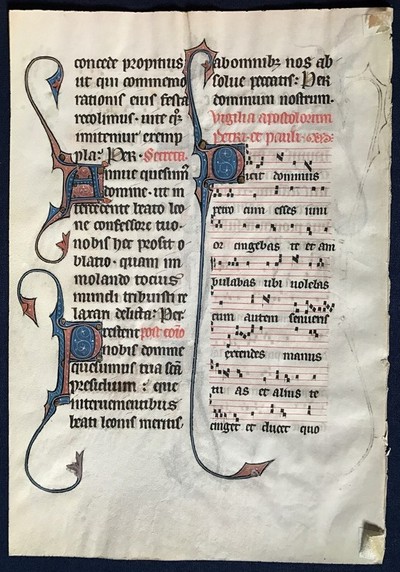 concede propitius
ut qui commemo
rationis eius festa
recolimus. uite q3
imitemur exemp
pla. Per. Secreta.
Annue quesum9
domine. ut in
tercedente beato leo
ne confessore tuo.
nobis hec prosit o
blatio. quam im
molando tocius
mundi tribuisti re
laxari delicta. Per
Prestent post co͞io
nobis domine
quesumus tua s͞c͞a
presidium: que
interuenientibus
beati leonis meritis.
ab omnib3 nos ab
solue peccatis. Per
dominum nostrum.
Vigilia apostolorum
Petri et pauli.
Dicit dominus
petro cum esses iuni
or cingebas te et am
bulabas ubi uolebas
cum autem senueris
extendes manus
tu as et alius te
cinget et ducet quo